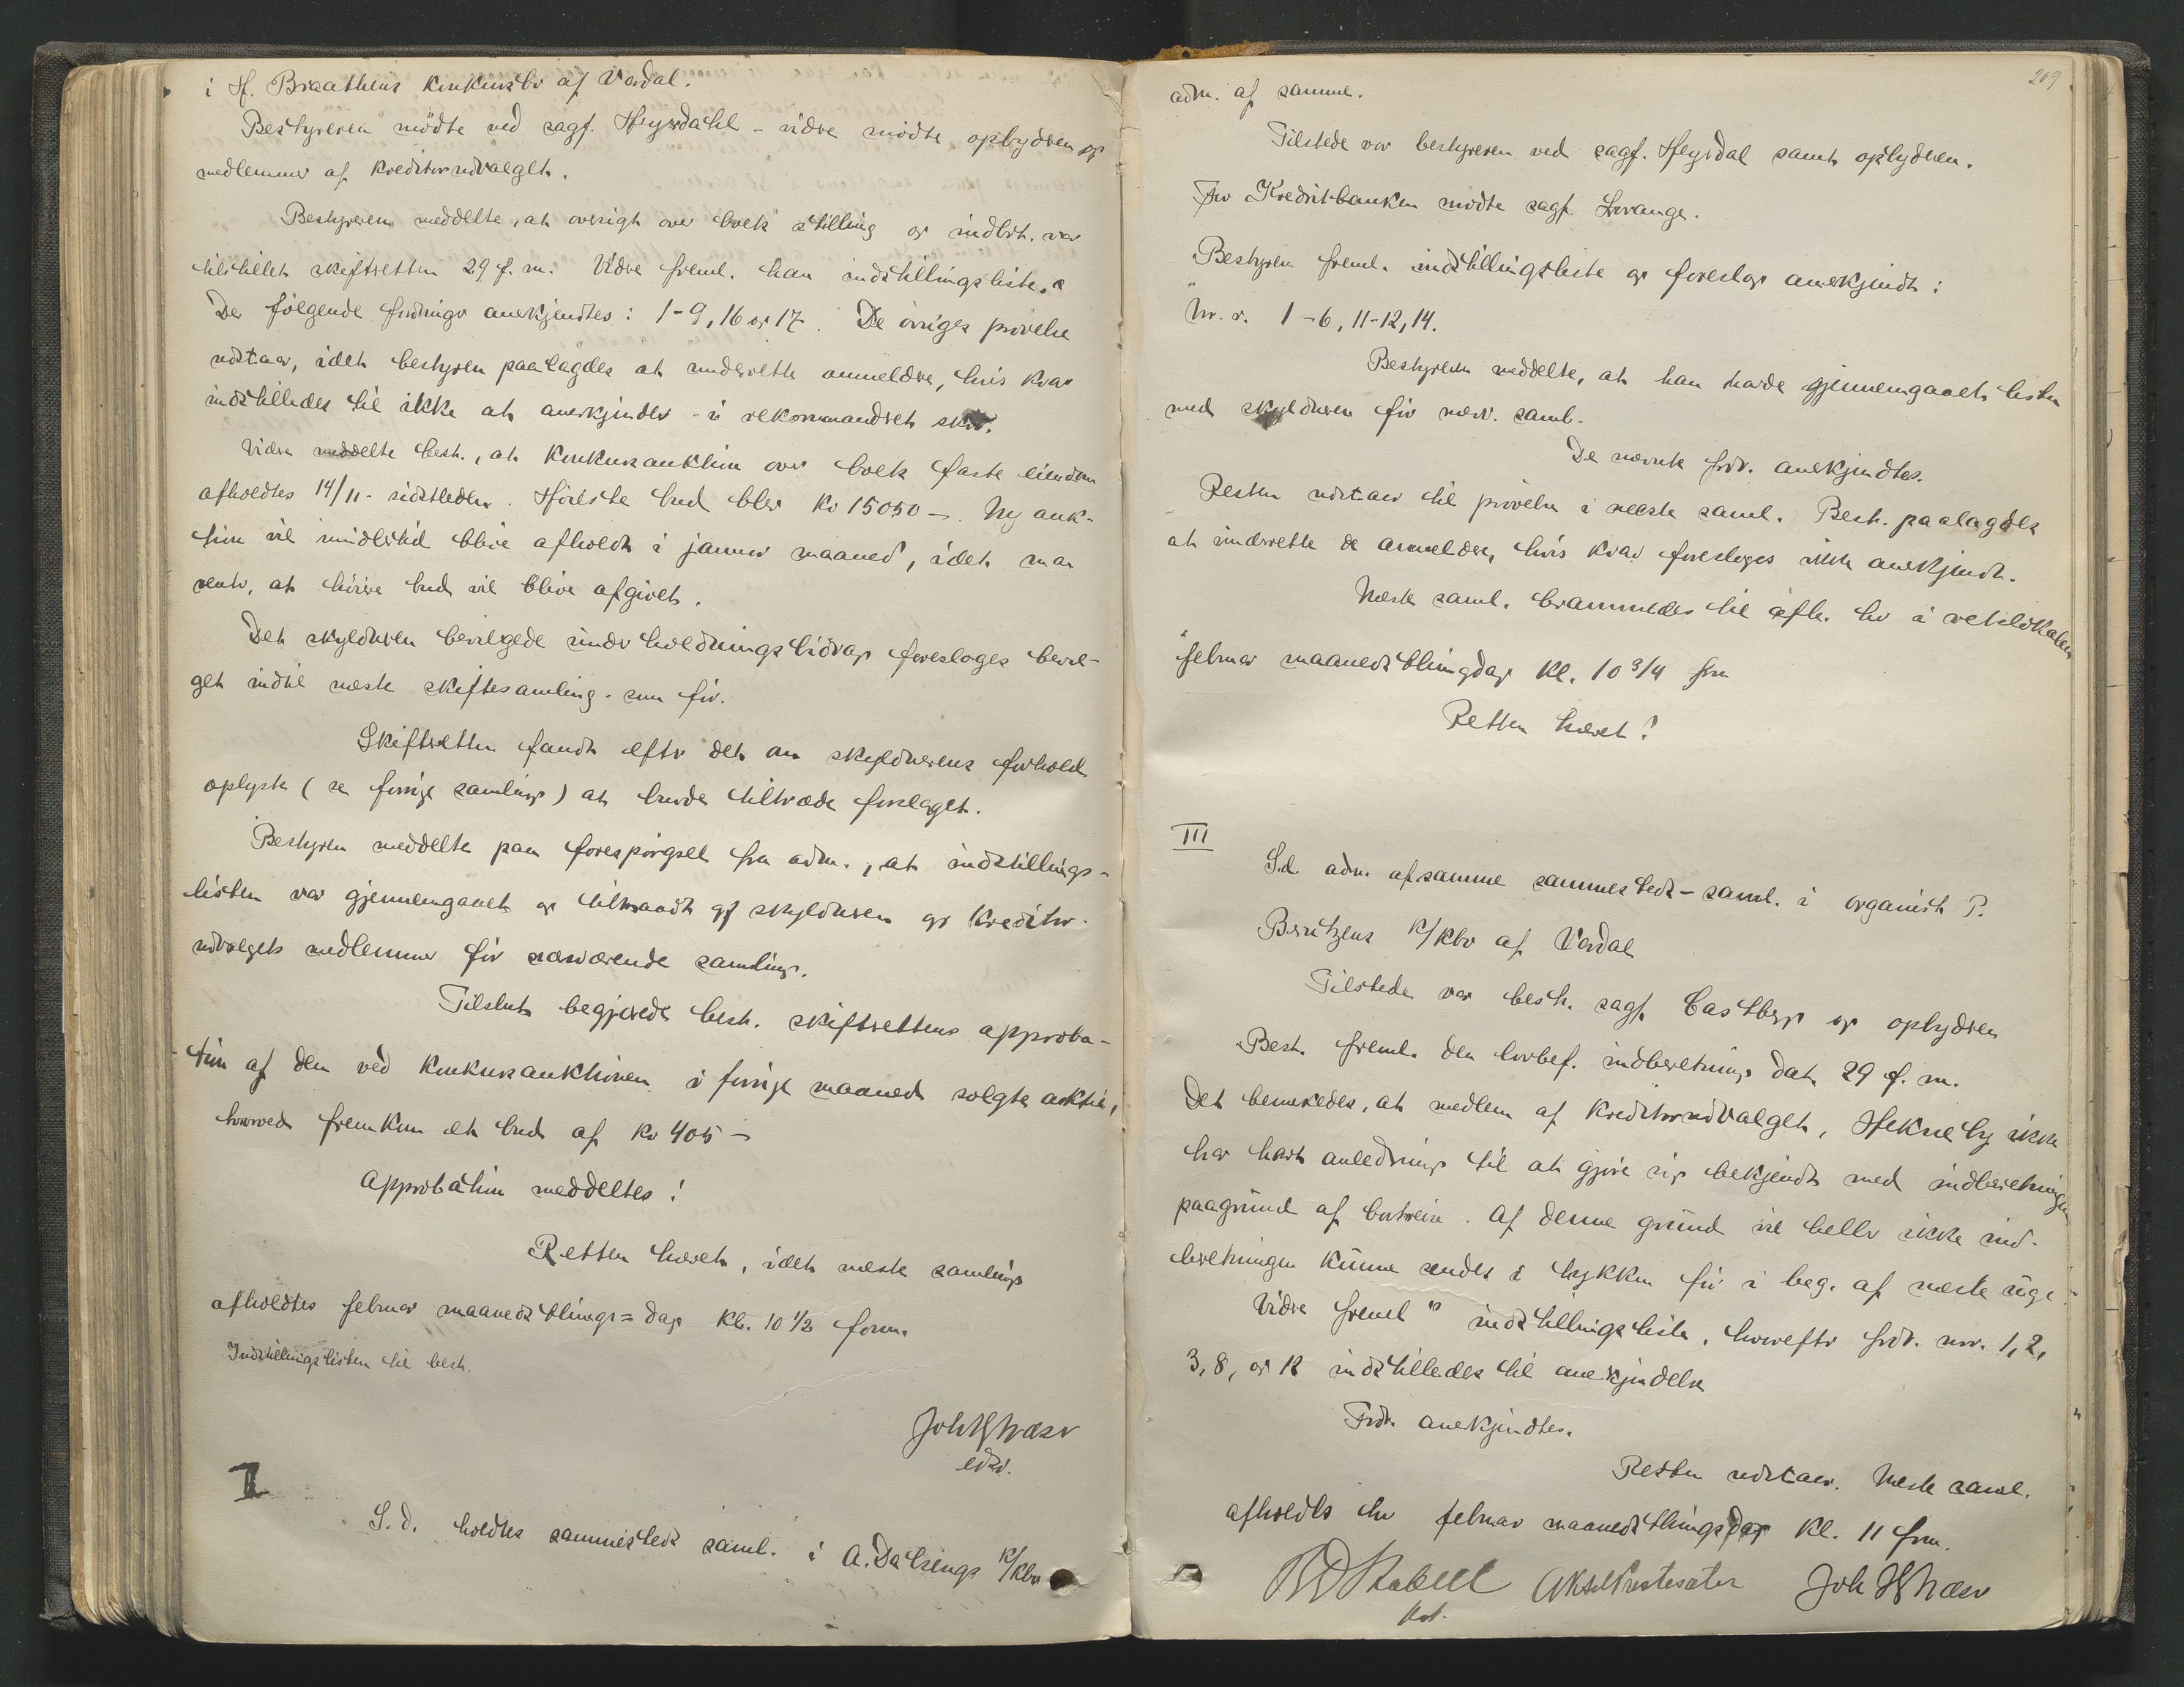 i H. Braathens konkursbo af Verdal.
Bestyreren mödte ved sagf. Heyerdahl - videre mödte opbyderen og
medlemmer af kreditorudvalget.
Bestyreren meddelte, at oversigt over boets stilling og indbr. var
tilstillet skifteretten 29 f. m. Videre freml. han indstillingsliste.
De følgende fordringer anerkjendtes: 1-9, 16 og 17. De övriges prövelse
udstaar, idet bestyreren paalagdes at underrette anmeldere, hvis krav
indstilledes til ikke at anerkjendes - i rekommanderet skr.
Videre meddelte best., at konkursauktion over boets faste eiendom
afholdtes 14/11 - sidstleden. Höieste bud blev kr 15050 -. Ny auk-
tion vil imidlertid blive afholdt i januar maaned, idet man
venter, at höiere bud vil blive afgivet.
Det skyldneren bevilgede underholdningsbidrag foresloges bevil-
get indtil næste skiftesamling som för.
Skifteretten fandt efter det om skyldnerens forhold
oplyste (se forrige samling) at burde tiltræde forslaget.
Bestyreren meddelte paa forespörgsel fra adm., at indstillings-
listen var gjennemgaaet og tiltraadt af skyldneren og kreditor-
udvalgets medlemmer för nærværende samling.
Tilslut begjærede best. skifterettens approba-
tion af den ved konkursauktionen i forrige maaned solgte aktie,
hvorved fremkom et bud af kr 405 -
Approbation meddeltes!
Retten hævet, idet næste samling
afholdtes februar maanedsthings = dag kl. 10 1/2 form.
Indstillingslisten til best.
Joh
edsv.
II
S. d. holdtes sammesteds saml. i A. Dalsengs k/kbo
269
adm. af samme.
Tilstede var bestyreren ved sagf. Heyrdal samt opbyderen.
For Kreditbanken mödte sagf. Lorange.
Bestyreren freml. indstillingsliste og foreslog anerkjendt:
Nr. 1-6, 11-12, 14.
Bestyreren meddelte, at han havde gjennemgaaet listen
med skyldneren för nærv. saml.
De nævnte fordr. anerkjendtes.
Resten udstaar til prövelse i næste saml. Best. paalagdes
at underrette de anmeldere, hvis krav foresloges ikke anerkjendt.
Næste saml. berammedes til afh. her i retslokalet
februar maanedsthingdag kl. 10 3/4 fm
Retten hævet!
III
S.d. adm. af samme sammesteds - saml. i organist P.
Berntzens k/kbo af Verdal
Tilstede var best. sagf. Castberg og opbyderen
Best. freml. den lovbef. indberetning dat. 29 f. m.
Det bemerkedes, at medlem af kreditorudvalget, Hekneby ikke
har havt anledning til at gjöre sig bekjendt med indberetningen
paagrund af bortreise. Af denne grund vil heller ikke ind-
beretningen kunne sendes i trykken för i beg. af næste uge.
Videre freml. indstillingsliste, hvorefter fordr. nr. 1, 2,
3, 8, og 12 indstilledes til anerkjendelse
Fordr. anerkjendtes.
Resten udstaar. Næste saml.
afholdes her februar maanedsthingsdag kl. 11 fm.
Joh